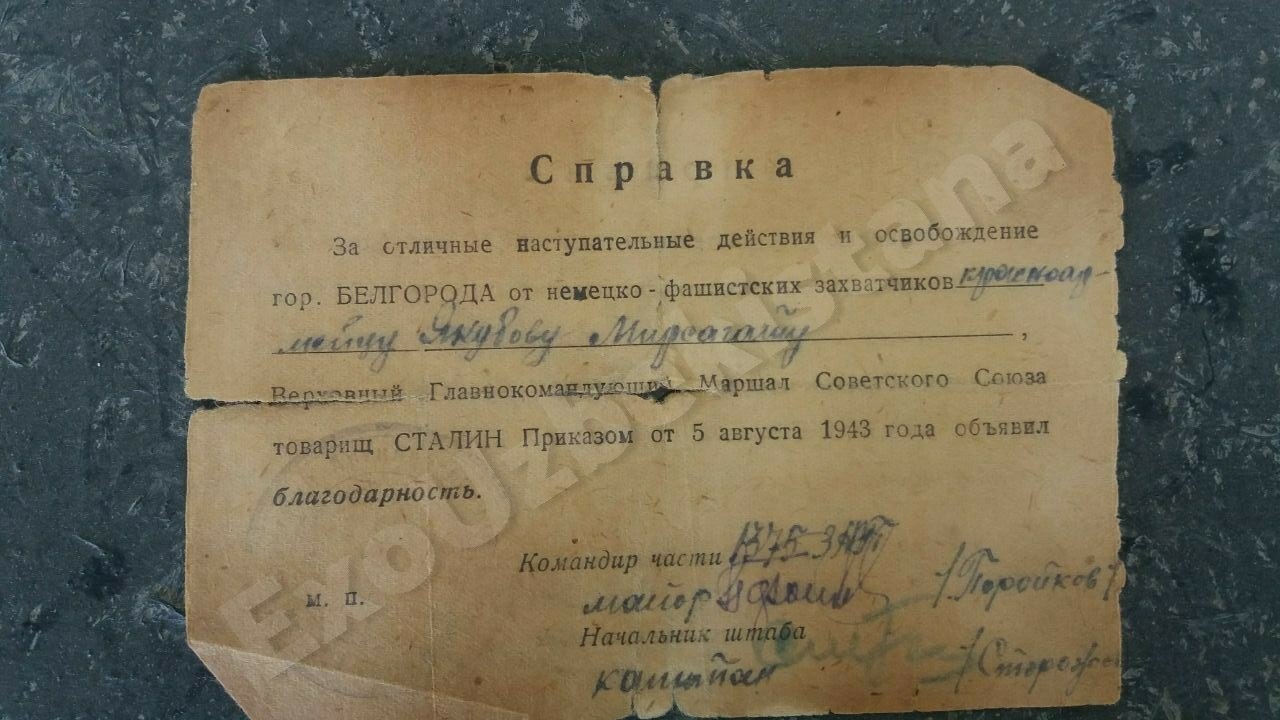 Справка
За отличные наступательные действия и освобождение
гор. БЕЛГОРОДА от немецко-фашистских захватчиков красноар-
мейцу Якубову Мирсагату,
Верховный Главнокомандующий Маршал Советского Союза
товарищ СТАЛИН Приказом от 5 августа 1943 года объявил
благодарность.
Командир части 1375 ЗАП
м. п.
майор /Поройков/
Начальник штаба
капитан
ExoUzbekistana